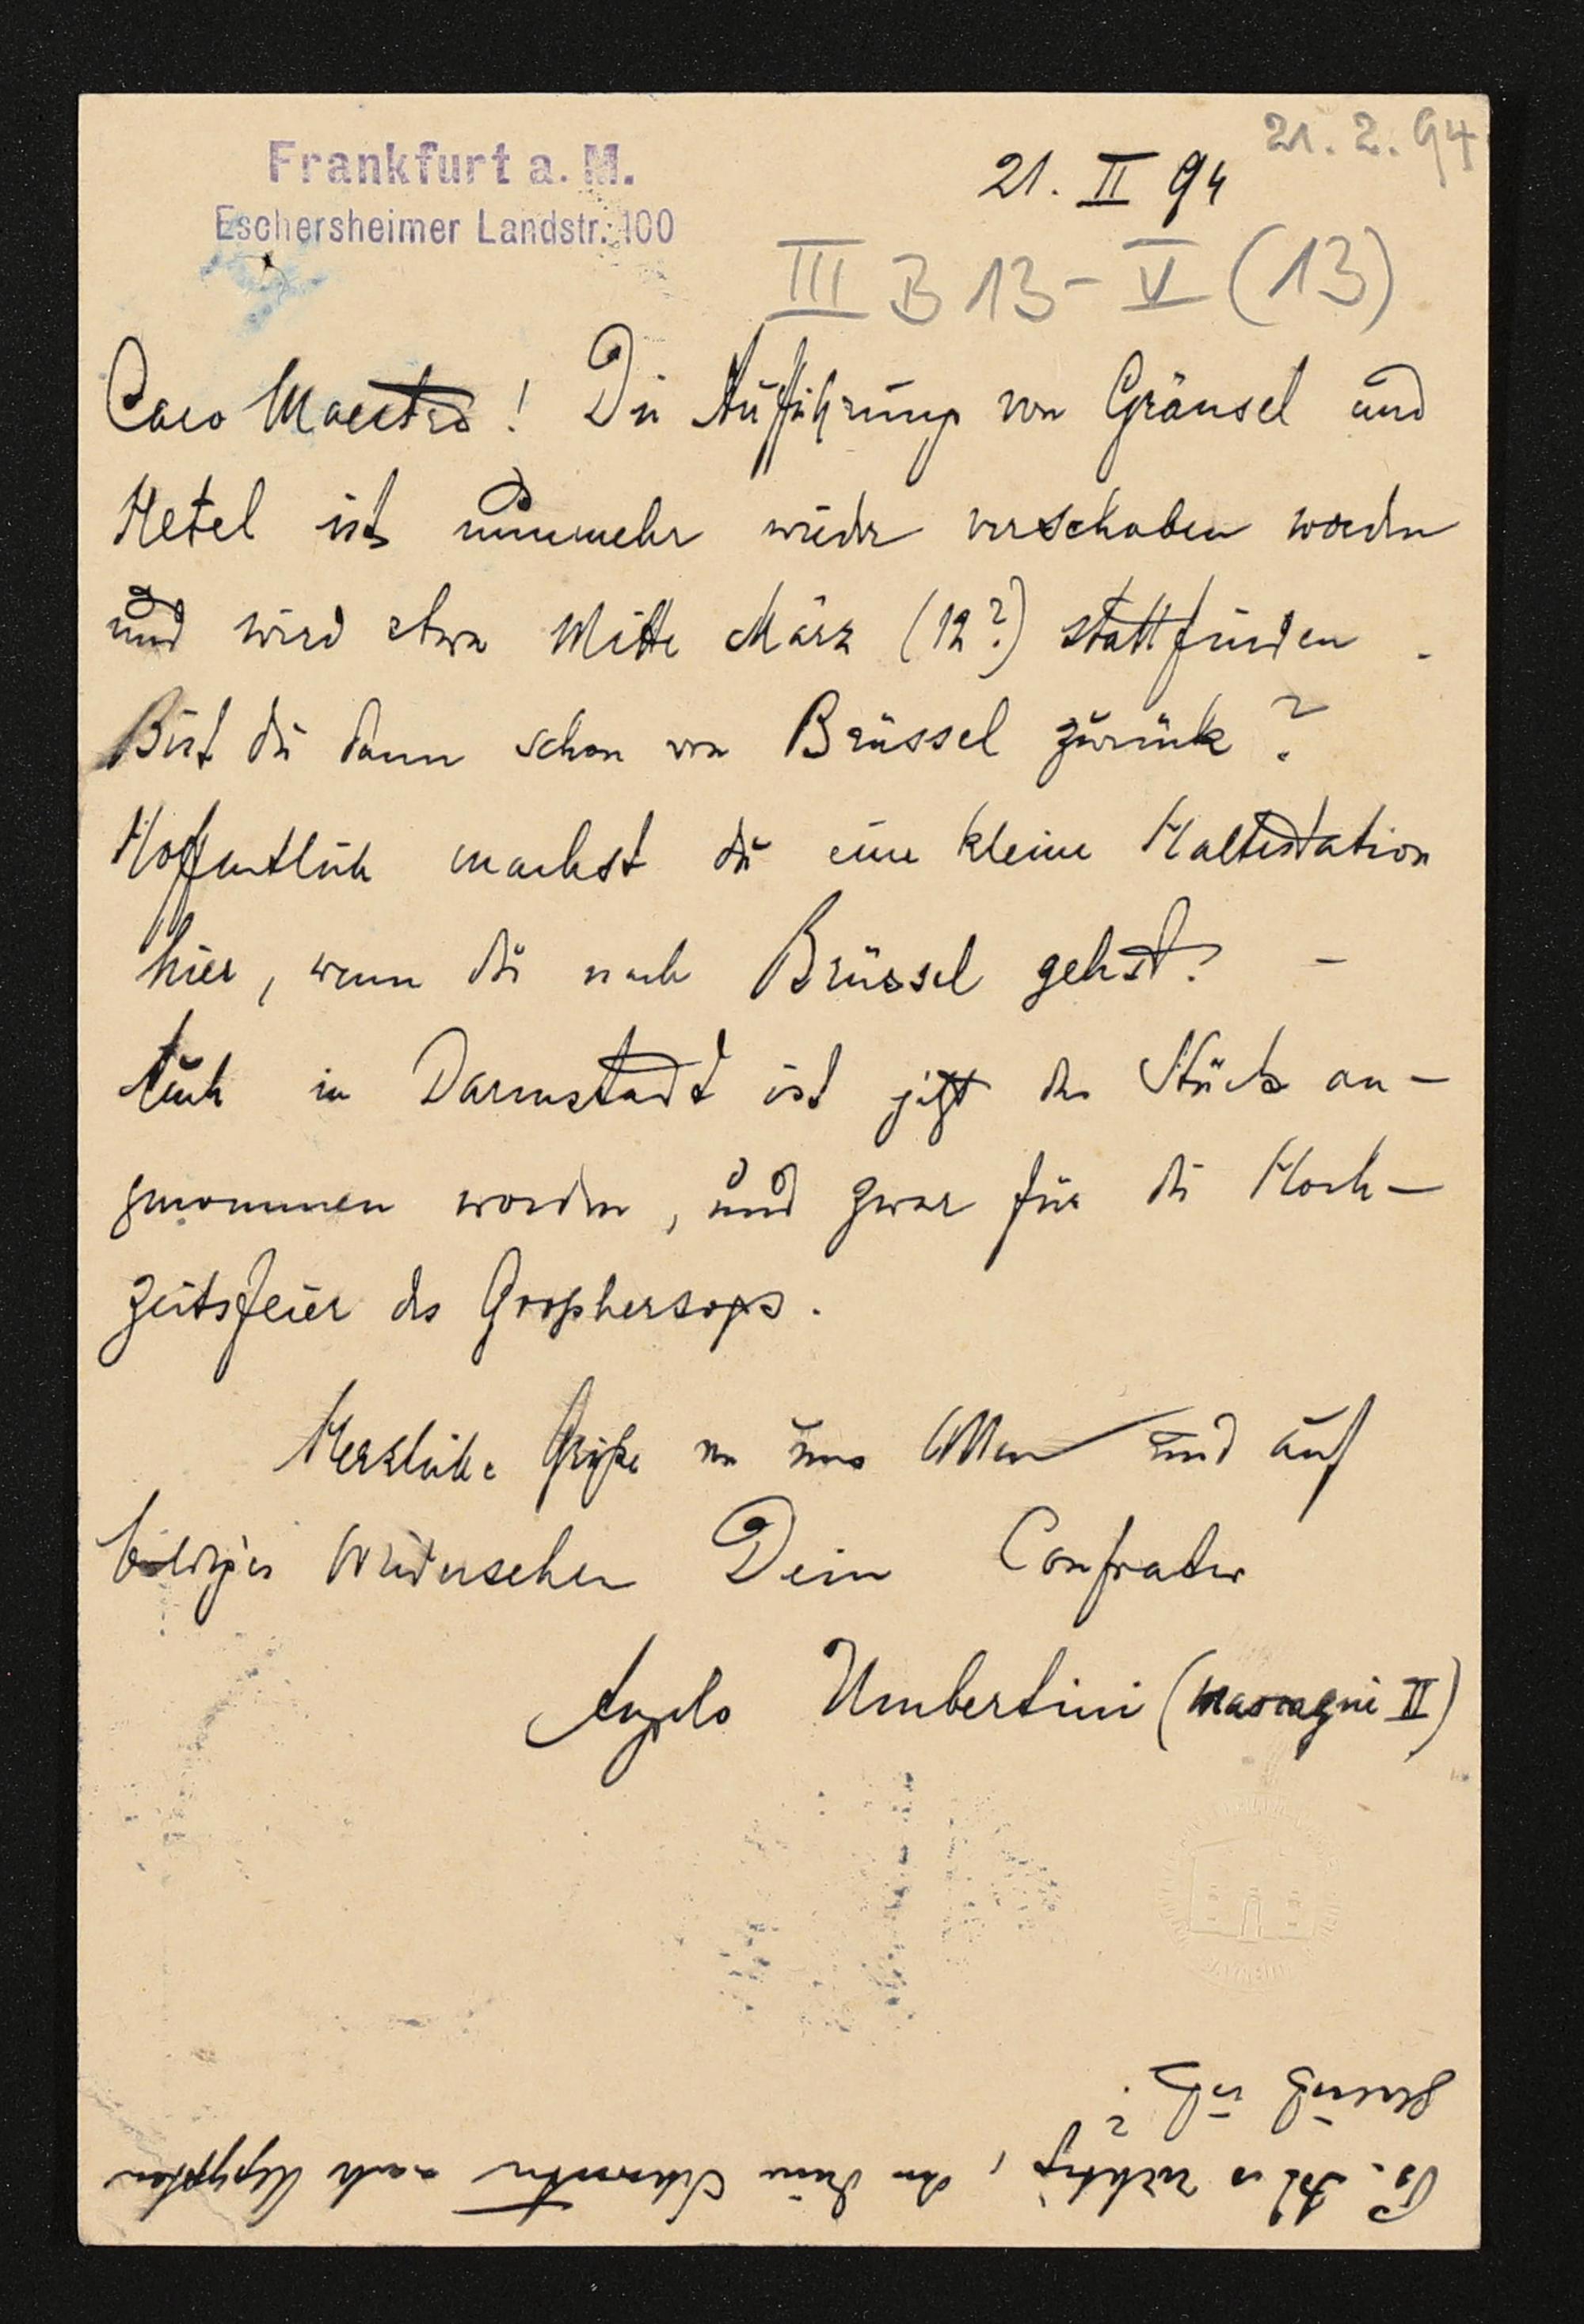 Frankfurt a. M.
Eschersheimer Landstr. 100
21. 2. 94
21. II 94
III B 13 - V (13)
Caro Maestro! Die Aufführung von Gränsel und
Hetel ist nunmehr wieder verschoben worden
und wird etwa Mitte März (12?) stattfinden.
Bist du dann schon von Brüssel zurück?
Hoffentlich machst du eine kleine Haltestation
hier, wenn du nach Brüssel gehst? –
Auch in Darmstadt ist jetzt das Stück an-
genommen worden, und zwar für die Hoch-
zeitsfeier des Großherzogs.
Herzliche Grüße von uns Allen und auf
baldiges Wiedersehen Dein Confrater
Angelo Umbertini (Mascagni II)
Ps. Ist es richtig, daß Deine Schwester nach Aegypten
ist?